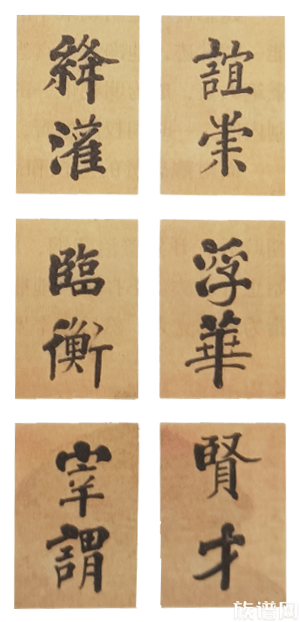 絳灌
臨衡
宰謂
誼崇
浮華
賢才
族谱网